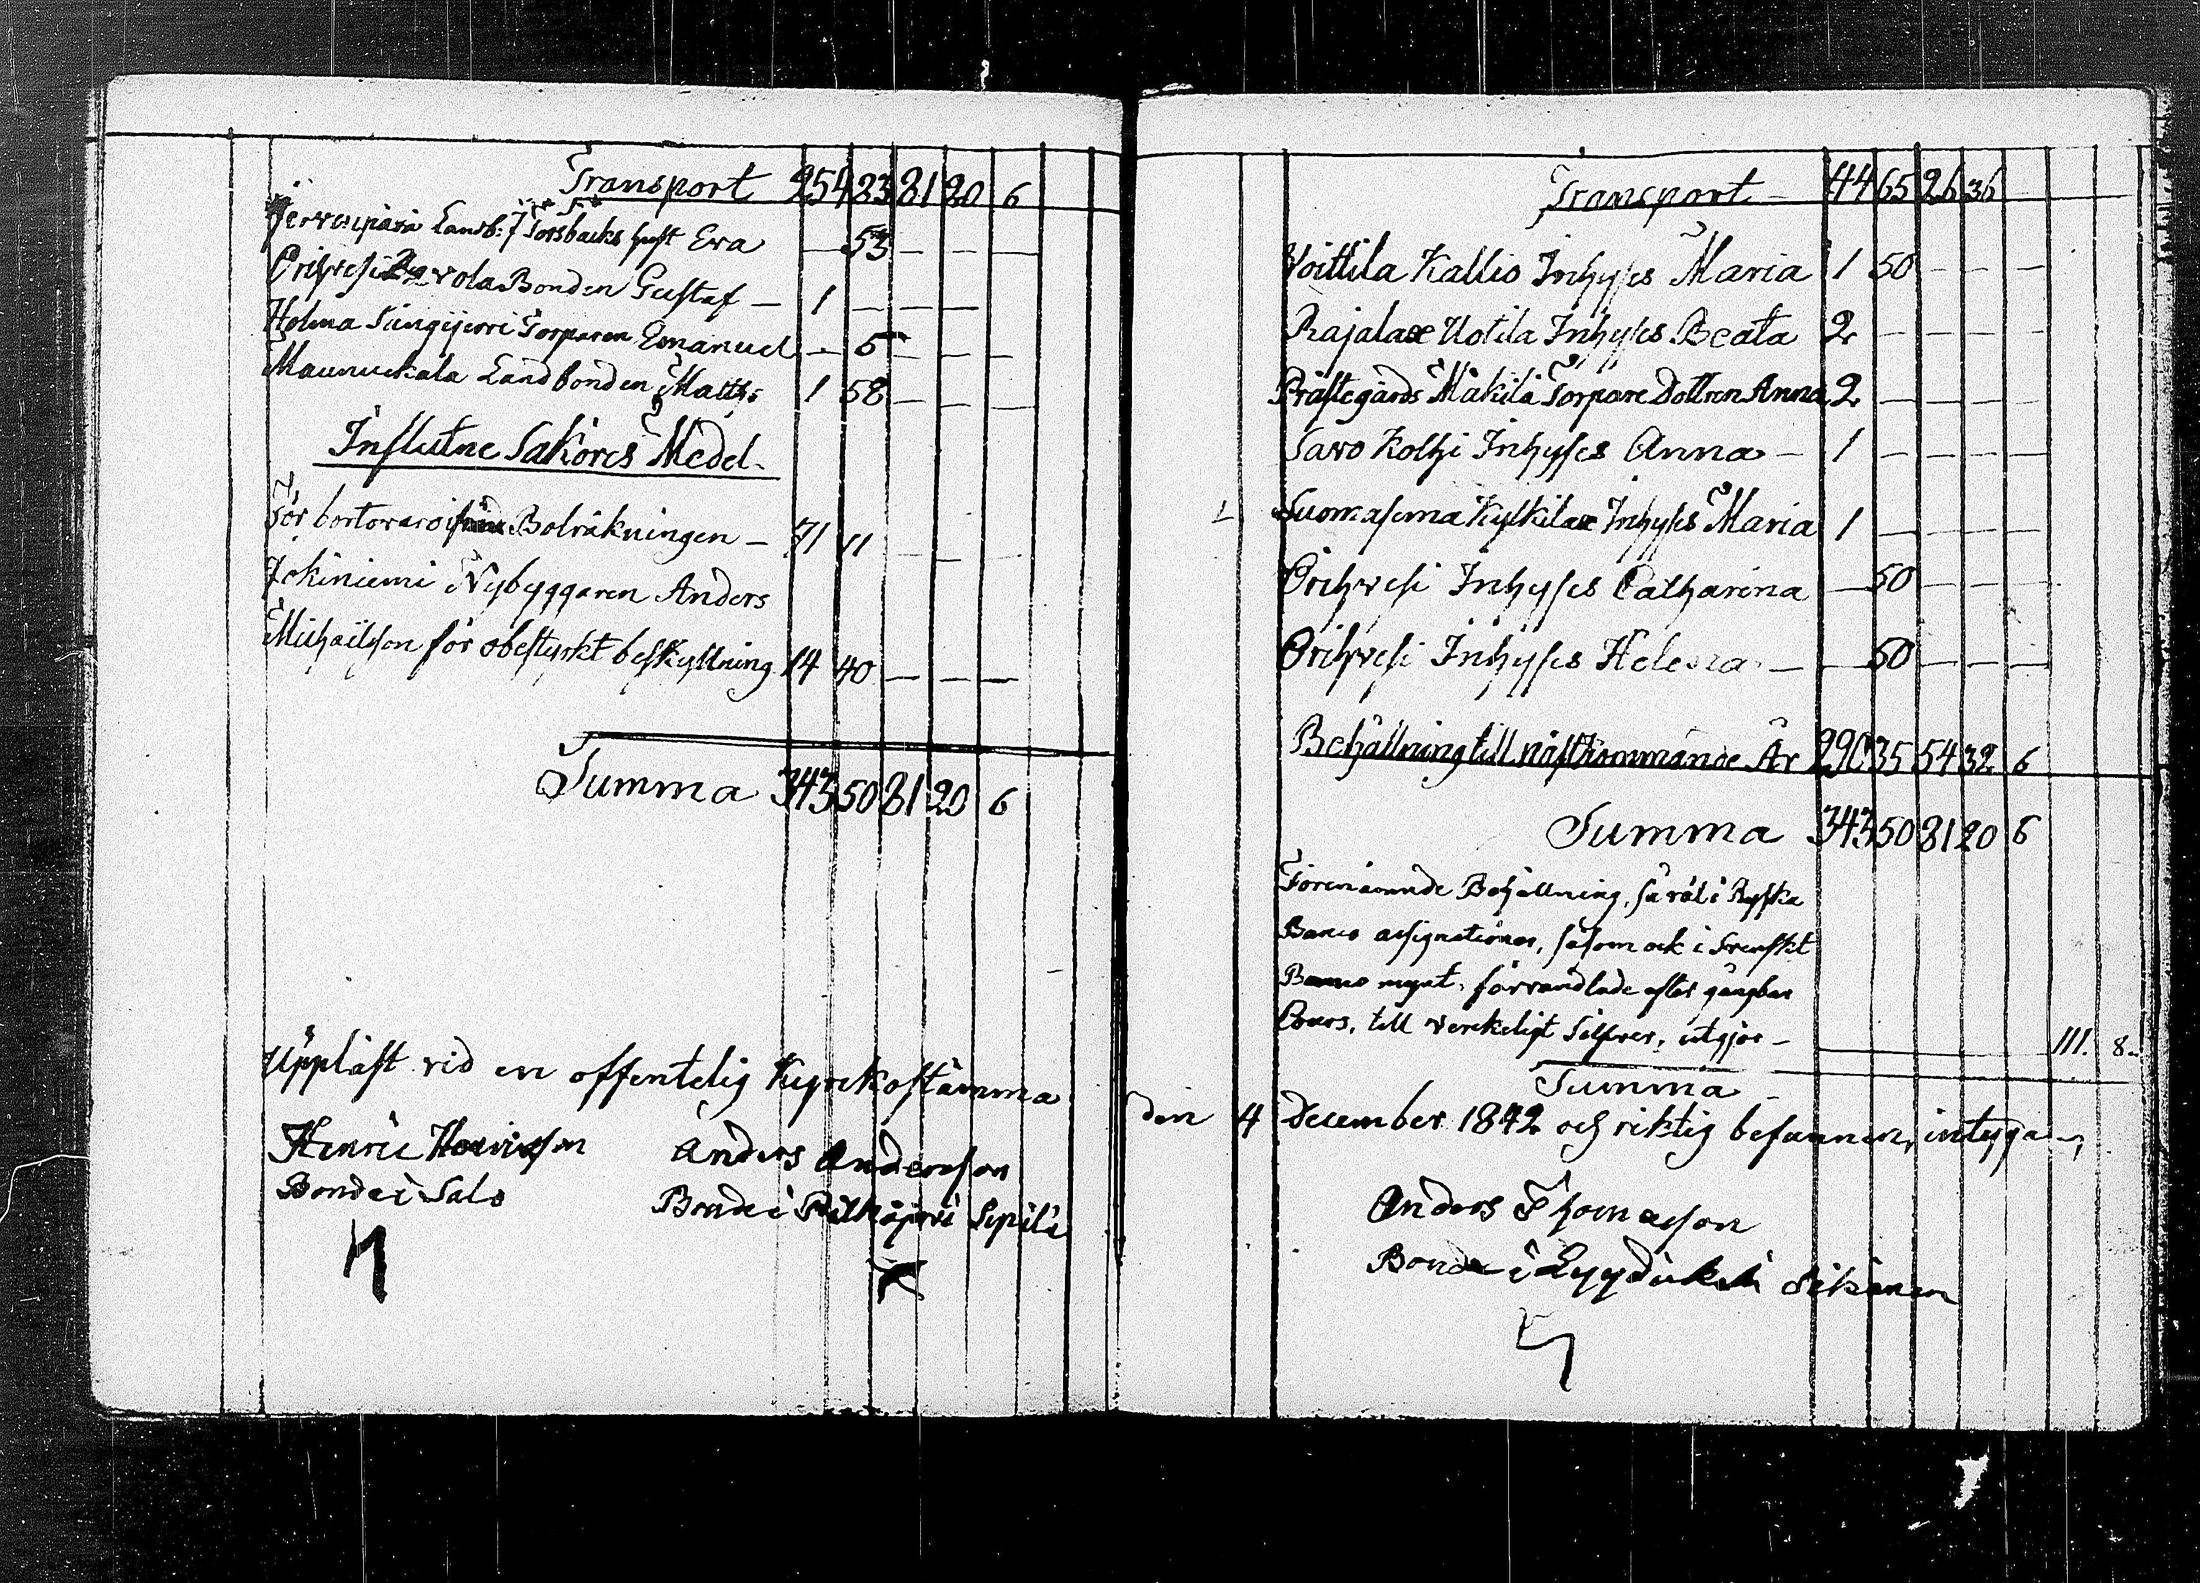 Transport 254 23 81 20 6
Landb: Torsbacks hust Eva — 53 — — —
Orihvesi Bonden Gustaf — 1 — — —
Holma Torparen Emanuel — 5 — — —
Maunuckala Landbonden Matths 1 58 — — —
Influtne Saköres Medel.
För Bolräkningen — 71 11 — — —
Jokiniemi Nybyggaren Anders
Michaëlson för obestyrkt beskyllning 14 40 — — —
Summa 343 50 81 20 6
Uppläst vid en offentelig Kyrckostämma
Henric Henricsson
Bonde i Salo
Anders Andersson
Bonde i Pitkäjärvi Sepilä
Transport — 44 65 26 36
Voittila Kallio Inhyses Maria 1 50 — — —
Rajalax Uotila Inhyses Beata 2 — — — —
Prästegårds Mäkilä Torpare Dottren Anna 2 — — — —
Savo Kolhi Inhyses Anna — 1 — — — —
Suomasema Inhyses Maria 1 — — — —
Orihvesi Inhyses Catharina — 50 — — —
Orihvesi Inhyses Helena — — 50 — — —
Behållning till nästkommande År 290 35 54 32 6
Summa 343 50 81 20 6
Förenämnde Behållning, så väl i Ryska
Banco assignationer, såsom ock i Svenskt
Banco mynt, förvandlade efter gångbar
Cours, till verckeligt Silfver, utgjör — 111. 8.
Summa
den 4 December 1842 och riktig befunnen, intyga
Anders Thomasson
Bonde i